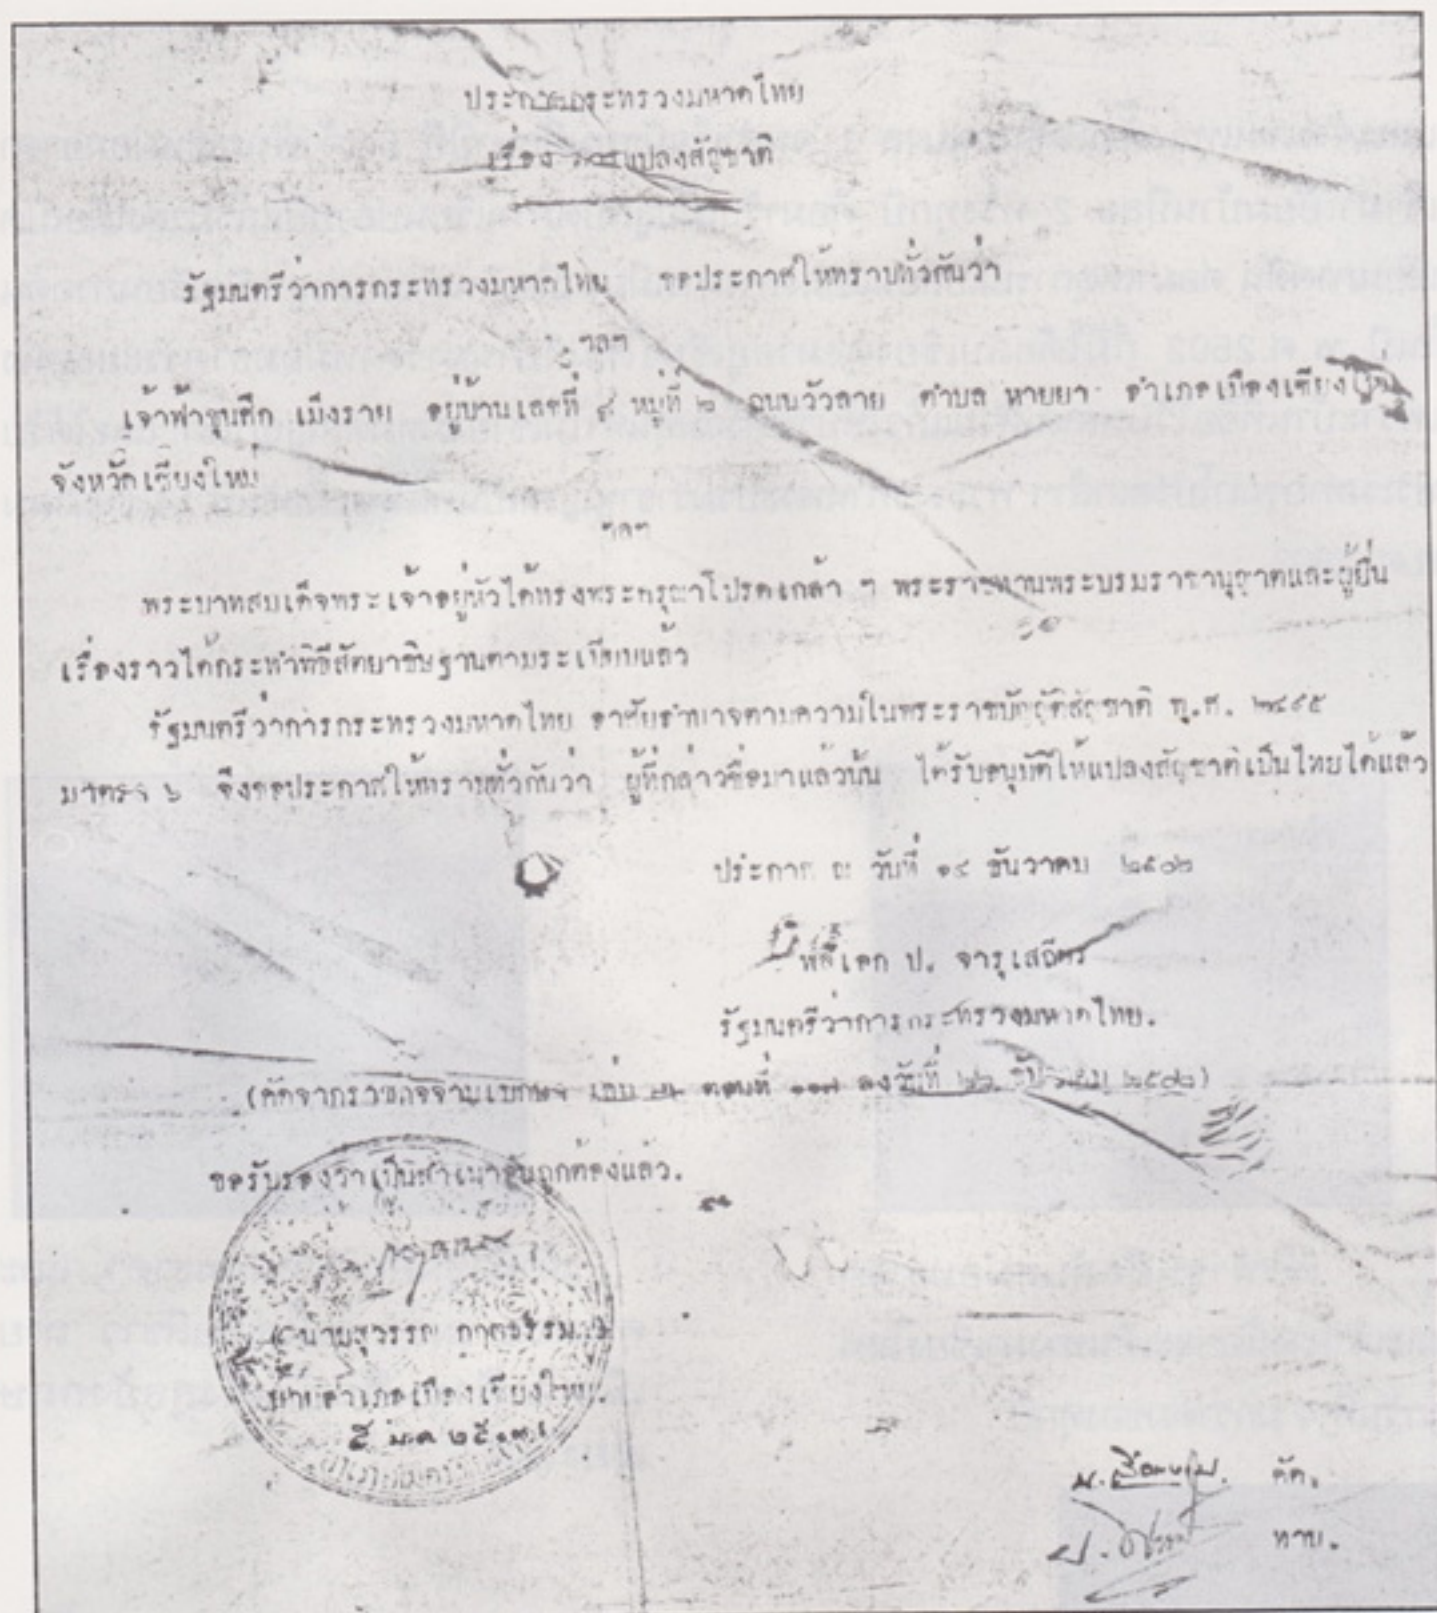 ประกาศกระทรวงมหาดไทย
เรื่อง การแปลงสัญชาติ
รัฐมนตรีว่าการกระทรวงมหาดไทย ขอประกาศให้ทราบทั่วกันว่า
ฯลฯ
เจ้าฟ้าขุนศึก เม็งราย อยู่บ้านเลขที่ ๙ หมู่ที่ ๒ ถนนวัวลาย ตำบล หายยา อำเภอเมืองเชียงใหม่
จังหวัดเชียงใหม่
ฯลฯ
พระบาทสมเด็จพระเจ้าอยู่หัวได้ทรงพระกรุณาโปรดเกล้า ฯ พระราชทานพระบรมราชานุญาตและผู้ยื่น
เรื่องราวได้กระทำพิธีสัตยาธิษฐานตามระเบียบแล้ว
รัฐมนตรีว่าการกระทรวงมหาดไทย อาศัยอำนาจตามความในพระราชบัญญัติสัญชาติ พ.ศ. ๒๔๙๕
มาตรา ๖ จึงขอประกาศให้ทราบทั่วกันว่า ผู้ที่กล่าวชื่อมาแล้วนั้น ได้รับอนุมัติให้แปลงสัญชาติเป็นไทยได้แล้ว
ประกาศ ณ วันที่ ๑๔ ธันวาคม ๒๕๐๒
พลเอก ป. จารุเสถียร
รัฐมนตรีว่าการกระทรวงมหาดไทย.
(คัดจากราชกิจจานุเบกษา เล่ม ตอนที่ ๑๑๗ ลงวันที่ ๒๒ ธันวาคม ๒๕๐๒)
ขอรับรองว่าเป็นสำเนาอันถูกต้องแล้ว.
(นายสุวรรณ
นายอำเภอเมืองเชียงใหม่.
๕ ม.ค.
คัด.
ทาน.